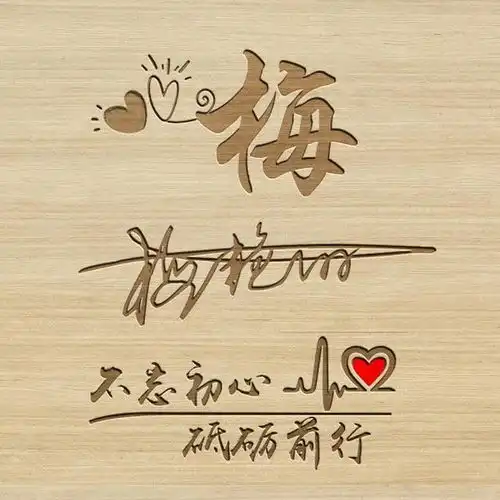 梅
不忘初心
砥砺前行